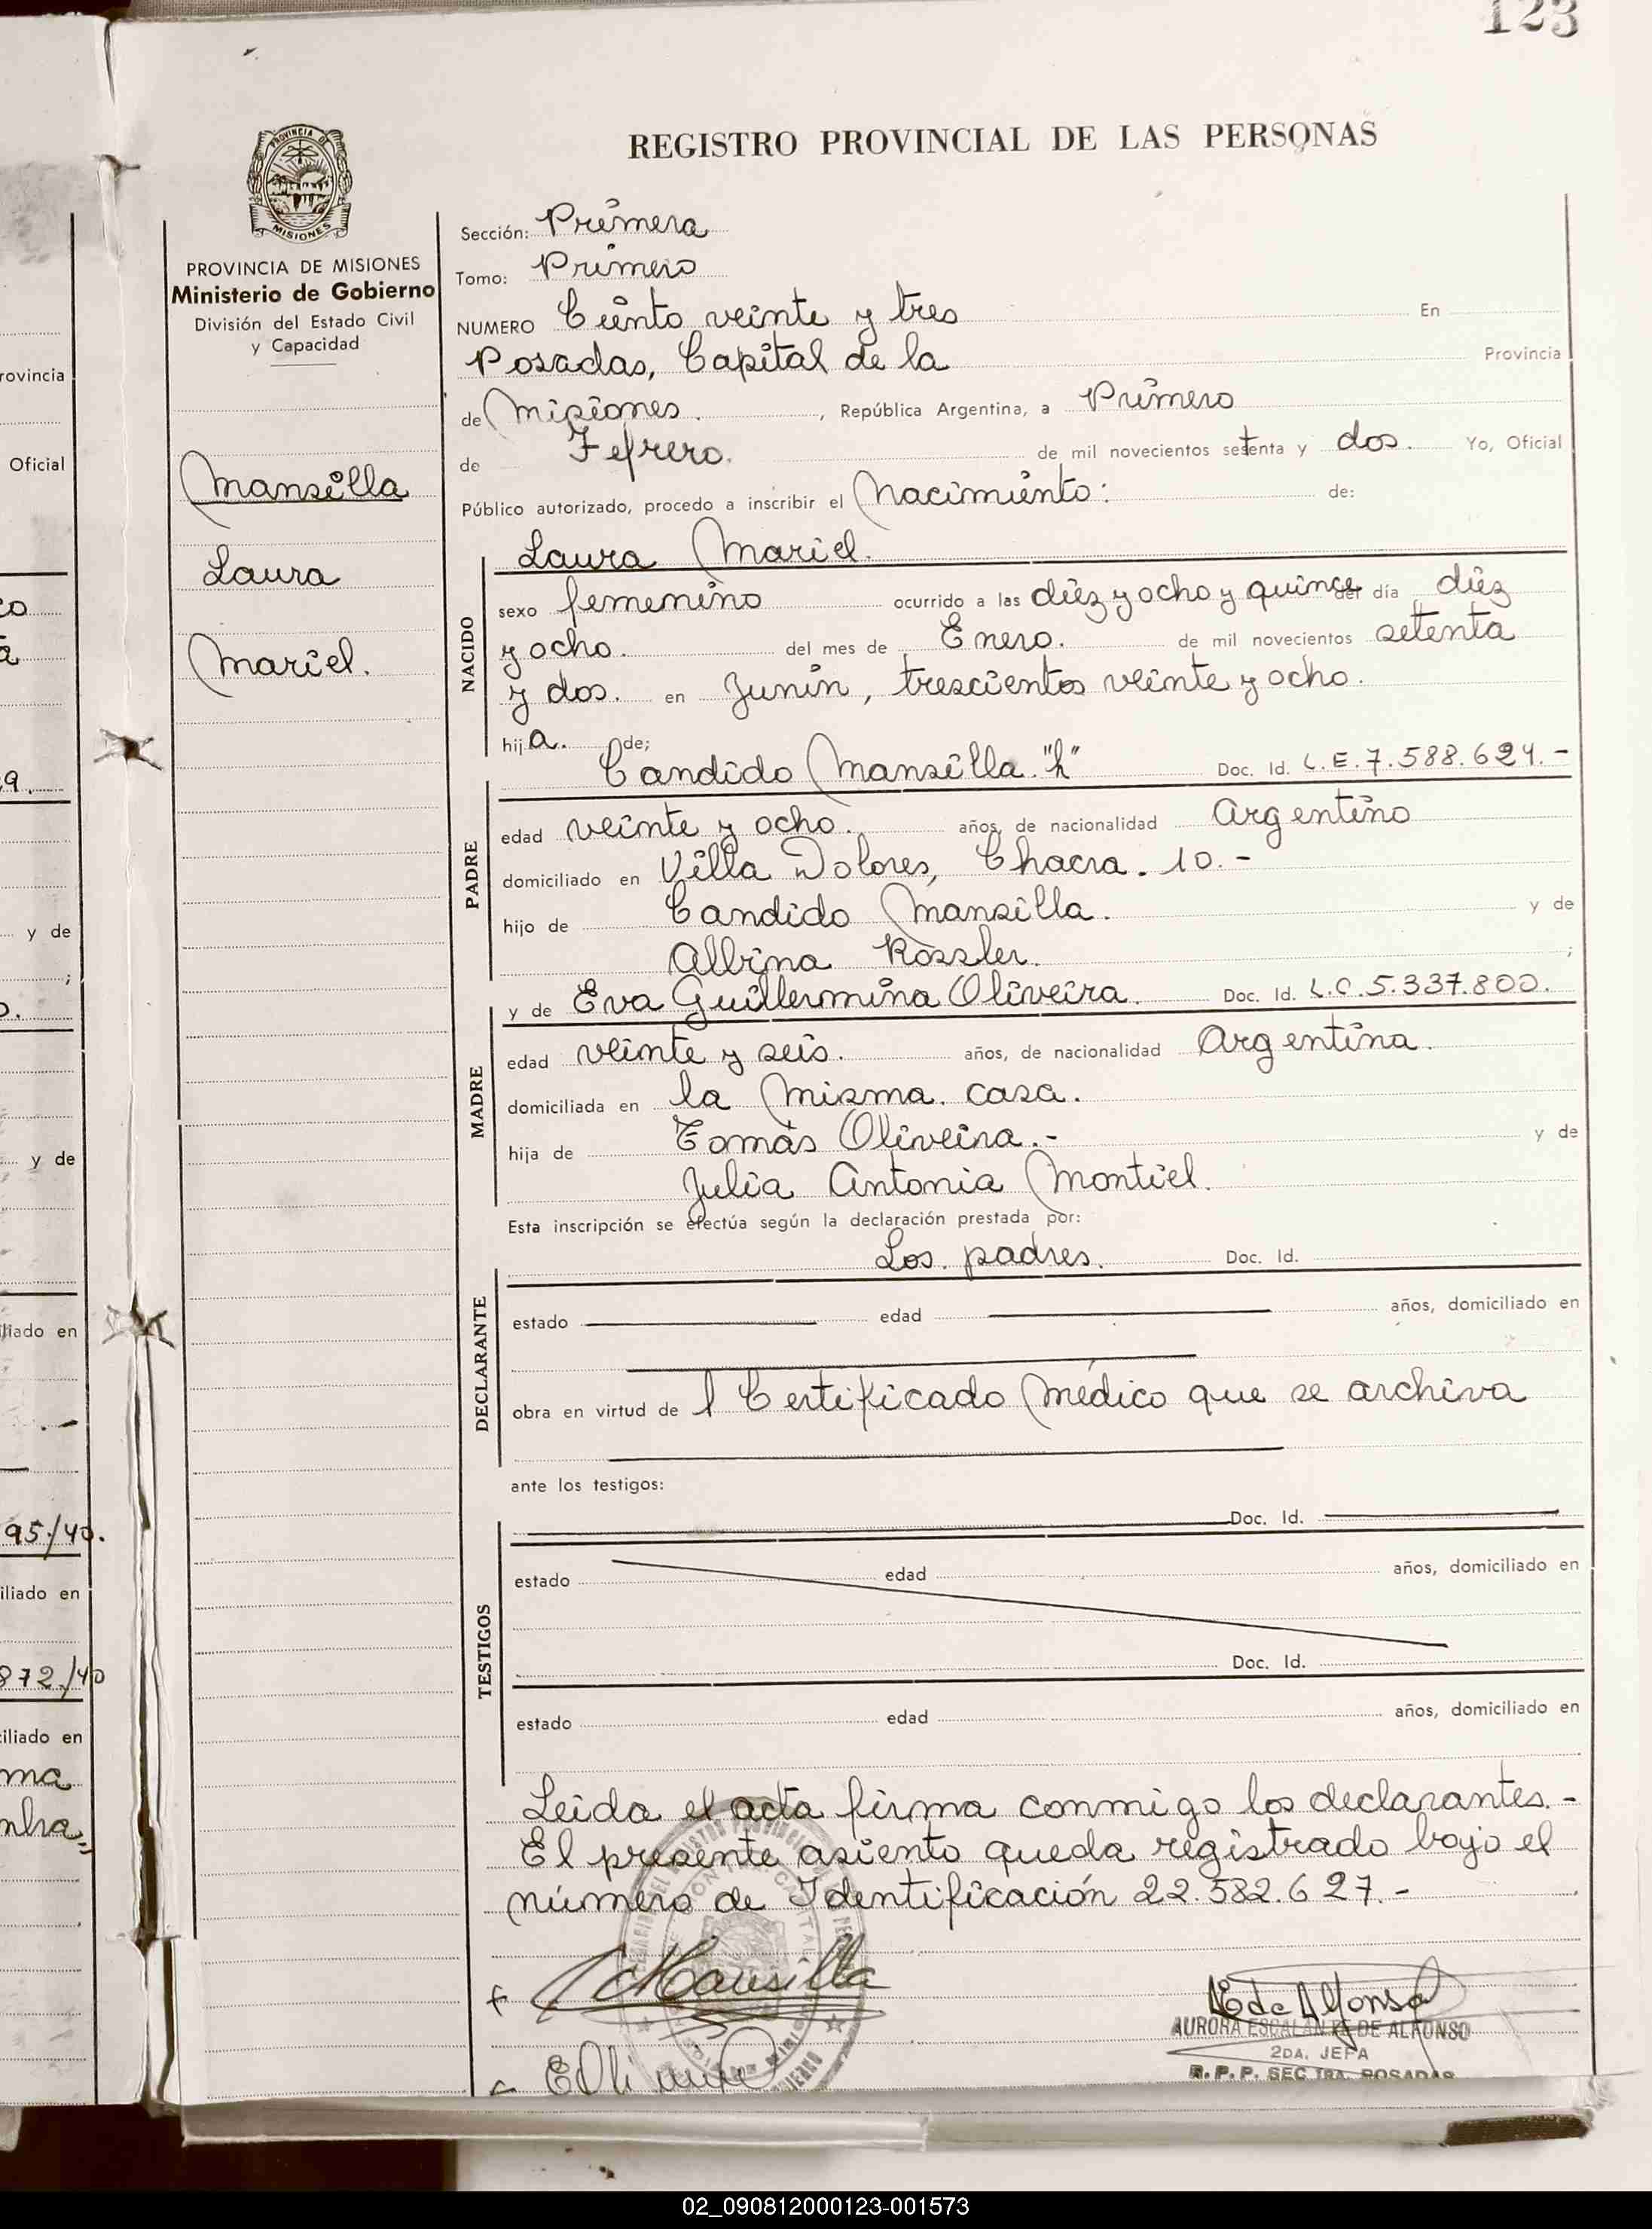 123
REGISTRO PROVINCIAL DE LAS PERSONAS
PROVINCIA DE MISIONES
PROVINCIA DE MISIONES
Ministerio de Gobierno
División del Estado Civil
y Capacidad
Mansilla
Laura
Mariel.
Sección: Primera
Tomo: Primero
NUMERO Ciento veinte y tres En
Posadas, Capital de la Provincia
de Misiones. , República Argentina, a Primero
de Febrero. de mil novecientos setenta y dos. Yo, Oficial
Público autorizado, procedo a inscribir el Nacimiento: de:
Laura Mariel.
NACIDO
sexo femenino ocurrido a las diez y ocho y quince del día diez
y ocho. del mes de Enero. de mil novecientos setenta
y dos. en Junín, trescientos veinte y ocho.
hija. de;
Candido Mansilla "h" Doc. Id. L.E. 7.588.624.-
PADRE
edad veinte y ocho. años, de nacionalidad Argentino
domiciliado en Villa Dolores, Chacra. 10.-
hijo de Candido Mansilla. y de
Albina Rossler. ;
y de Eva Guillermina Oliveira. Doc. Id. L.C. 5.337.800.
MADRE
edad veinte y seis. años, de nacionalidad Argentina.
domiciliada en la misma. casa.
hija de Tomás Oliveira.- y de
Julia Antonia Montiel.
Esta inscripción se efectúa según la declaración prestada por:
Los. padres. Doc. Id.
DECLARANTE
estado edad años, domiciliado en
obra en virtud de l Certificado Médico que se archiva
ante los testigos:
Doc. Id.
TESTIGOS
estado edad años, domiciliado en
Doc. Id.
estado edad años, domiciliado en
Leida el acta firma conmigo los declarantes.-
El presente asiento queda registrado bajo el
número de Identificación 22.582.627.-
CMansilla
AEde Alfonso
AURORA ESCALANTE DE ALFONSO
2DA. JEFA
R. P. P. SEC. 1RA. POSADAS
rovincia
Oficial
y de
;
y de
iliado en
95./40.
iliado en
872./40
iliado en
02_090812000123-001573